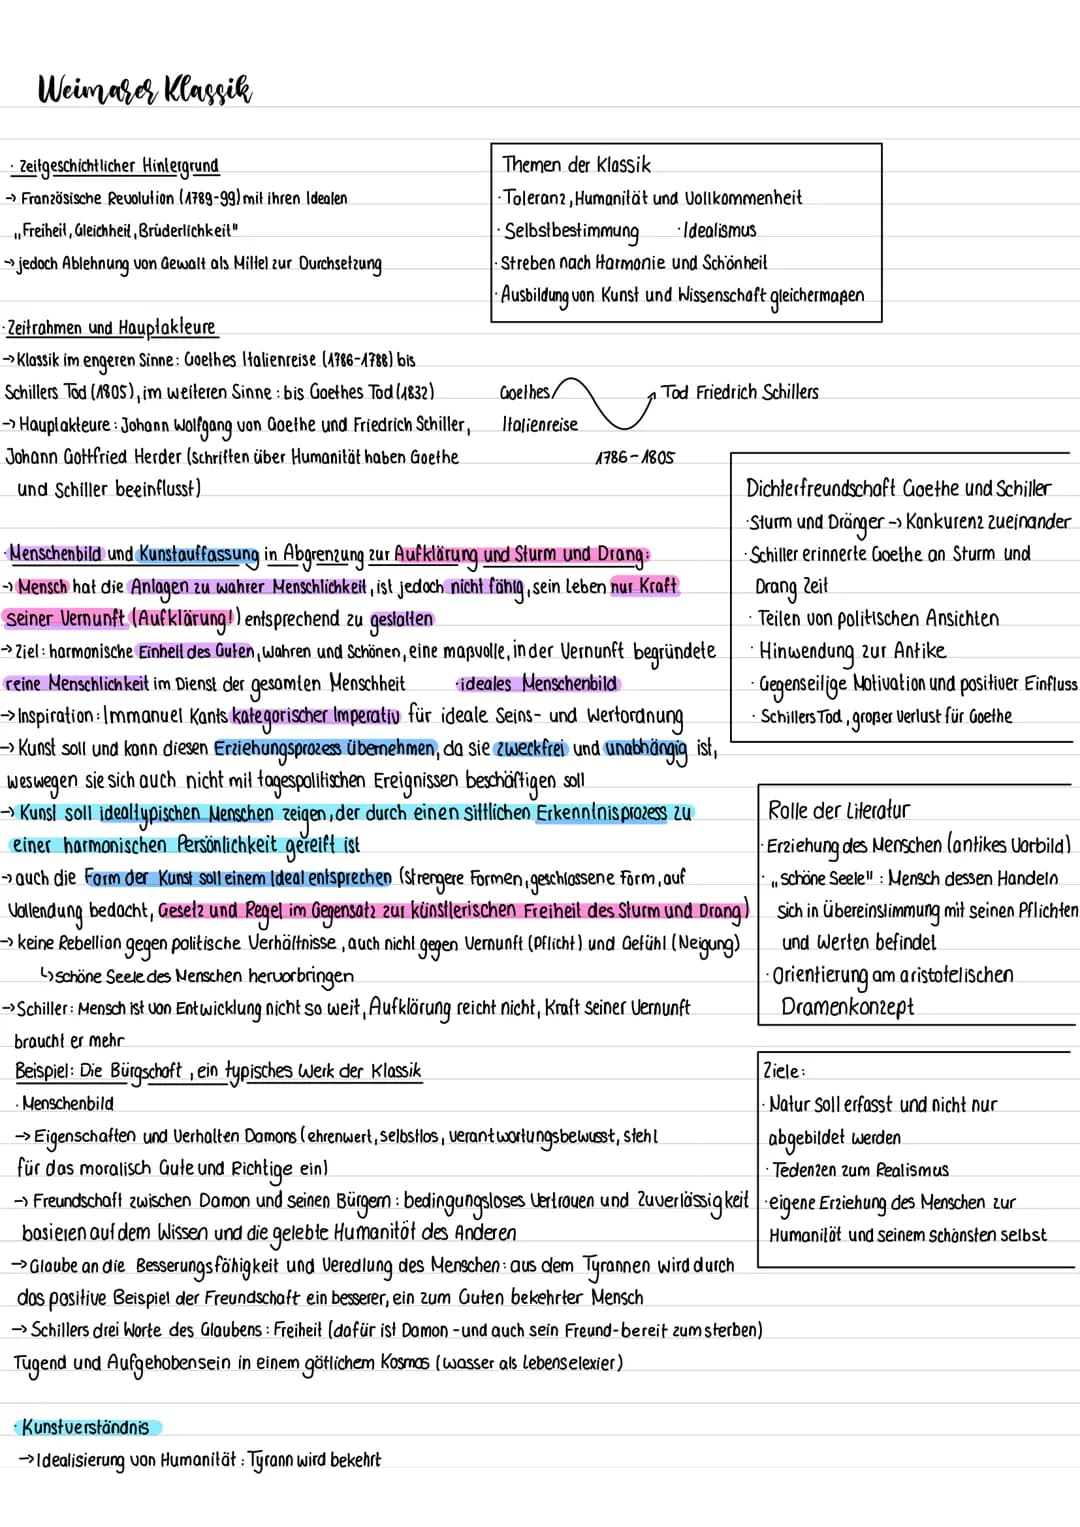 Weimarer Klassik
· Zeitgeschichtlicher Hintergrund
→ Französische Revolution (1789-99) mit ihren Idealen
„Freiheit, Gleichheit, Brüderlichkeit"
→ jedoch Ablehnung von Gewalt als Mittel zur Durchsetzung
Themen der Klassik
· Toleranz, Humanität und Vollkommenheit
· Selbstbestimmung · Idealismus
· Streben nach Harmonie und Schönheit
· Ausbildung von Kunst und Wissenschaft gleichermaßen
· Zeitrahmen und Hauptakteure
→ Klassik im engeren Sinne: Goethes Italienreise (1786-1788) bis
Schillers Tod (1805), im weiteren Sinne: bis Goethes Tod (1832)
→ Hauptakteure: Johann Wolfgang von Goethe und Friedrich Schiller,
Johann Gottfried Herder (Schriften über Humanität haben Goethe
und Schiller beeinflusst)
Goethes
Italienreise
Tod Friedrich Schillers
1786-1805
Dichterfreundschaft Goethe und Schiller
· Sturm und Dränger -> Konkurenz zueinander
· Schiller erinnerte Goethe an Sturm und
Drang Zeit
· Teilen von politischen Ansichten
· Hinwendung zur Antike
· Gegenseitige Motivation und positiver Einfluss
· Schillers Tod, großer Verlust für Goethe
· Menschenbild und Kunstauffassung in Abgrenzung zur Aufklärung und Sturm und Drang:
→ Mensch hat die Anlagen zu wahrer Menschlichkeit, ist jedoch nicht fähig, sein Leben nur Kraft
seiner Vernunft (Aufklärung!) entsprechend zu gestalten
→ Ziel: harmonische Einheit des Guten, Wahren und Schönen, eine maßvolle, in der Vernunft begründete
reine Menschlichkeit im Dienst der gesamten Menschheit · ideales Menschenbild
→ Inspiration: Immanuel Kants kategorischer Imperativ für ideale Seins- und Wertordnung
→ Kunst soll und kann diesen Erziehungsprozess übernehmen, da sie zweckfrei und unabhängig ist,
weswegen sie sich auch nicht mit tagespolitischen Ereignissen beschäftigen soll
→ Kunst soll idealtypischen Menschen zeigen, der durch einen sittlichen Erkenntnisprozess zu
einer harmonischen Persönlichkeit gereift ist
→ auch die Form der Kunst soll einem Ideal entsprechen (strengere Formen, geschlossene Form, auf
Vollendung bedacht, Gesetz und Regel im Gegensatz zur künstlerischen Freiheit des Sturm und Drang)
→ keine Rebellion gegen politische Verhältnisse, auch nicht gegen Vernunft (Pflicht) und Gefühl (Neigung)
↳ schöne Seele des Menschen hervorbringen
→ Schiller: Mensch ist von Entwicklung nicht so weit, Aufklärung reicht nicht, Kraft seiner Vernunft
braucht er mehr
Rolle der Literatur
· Erziehung des Menschen (antikes Vorbild)
· „schöne Seele": Mensch dessen Handeln
sich in Übereinstimmung mit seinen Pflichten
und Werten befindet
· Orientierung am aristotelischen
Dramenkonzept
Beispiel: Die Bürgschaft, ein typisches Werk der Klassik
· Menschenbild
→ Eigenschaften und Verhalten Damons (ehrenwert, selbstlos, verantwortungsbewusst, steht
für das moralisch Gute und Richtige ein)
→ Freundschaft zwischen Damon und seinen Bürgern: bedingungsloses Vertrauen und Zuverlässigkeit
basieren auf dem Wissen und die gelebte Humanität des Anderen
→ Glaube an die Besserungsfähigkeit und Veredlung des Menschen: aus dem Tyrannen wird durch
das positive Beispiel der Freundschaft ein besserer, ein zum Guten bekehrter Mensch
→ Schillers drei Worte des Glaubens: Freiheit (dafür ist Damon - und auch sein Freund - bereit zum sterben)
Tugend und Aufgehobensein in einem götlichem Kosmos (wasser als Lebenselexier)
Ziele:
· Natur soll erfasst und nicht nur
abgebildet werden
· Tedenzen zum Realismus
· eigene Erziehung des Menschen zur
Humanität und seinem schönsten selbst
· Kunstverständnis
→ Idealisierung von Humanität: Tyrann wird bekehrt